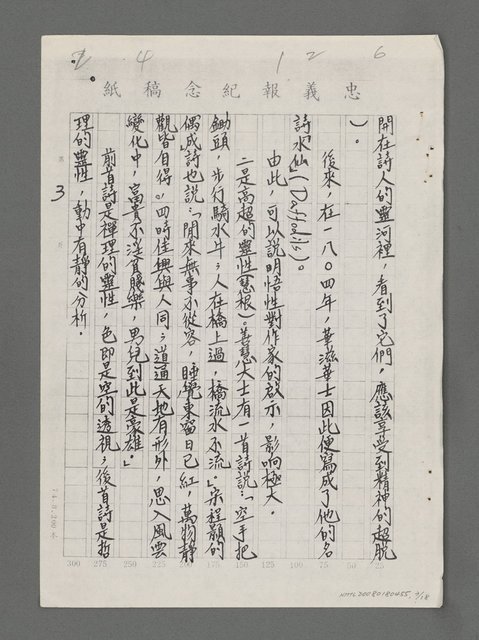 2 4 1 2 6
忠義報紀念稿紙
開在詩人的靈河裡，看到了它們，應該享受到精神的超脫
）。
後來，在一八〇四年，華滋華士因此便寫成了他的名
詩「水仙」(Daffodils)。
由此，可以說明悟性對作家的啟示，影响極大。
二是高超的靈性（慧根）。善慧大士有一首詩說：「空手把
鋤頭，步行騎水牛；人在橋上過，橋流水不流。」宋程顥的
偶成詩也說：「閒來無事不從容，睡覺東窗日已紅，萬物靜
觀皆自得。四時佳興與人同；道通天地有形外，思入風雲
變化中，富貴不淫貧賤樂，男兒到此是豪雄。」
前首詩是禪理的靈性，色即是空的透視；後首詩是哲
理的靈性，動中有靜的分析。
3
300 275 250 225 200 175 150 125 100 75 50 25
74.8.200本
NMTL20080180455, 3/18